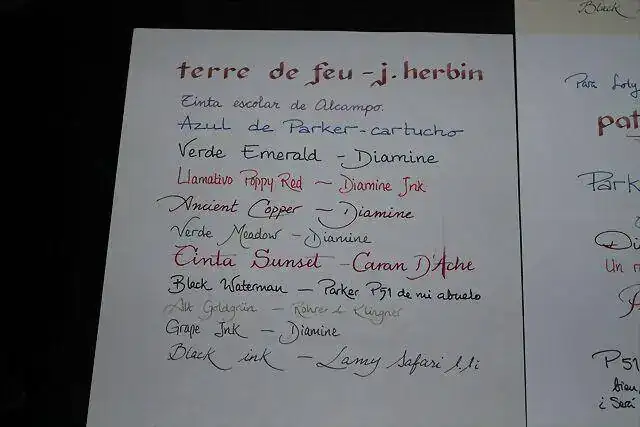 terre de feu - j. herbin
Tinta escolar de Alcampo.
Azul de Parker - cartucho
Verde Emerald - Diamine
Llamativo Poppy Red - Diamine Ink
Ancient Copper - Diamine
Verde Meadow - Diamine
Tinta Sunset - Caran D'Ache
Black Waterman - Parker P51 de mi abuelo
Alt Goldgrün - Rohrer & Klingner
Grape Ink - Diamine
Black ink - Lamy Safari 1.1i
Black
Para Loly
pat
Park
Di
Un r
P51
bien,
¡ Será